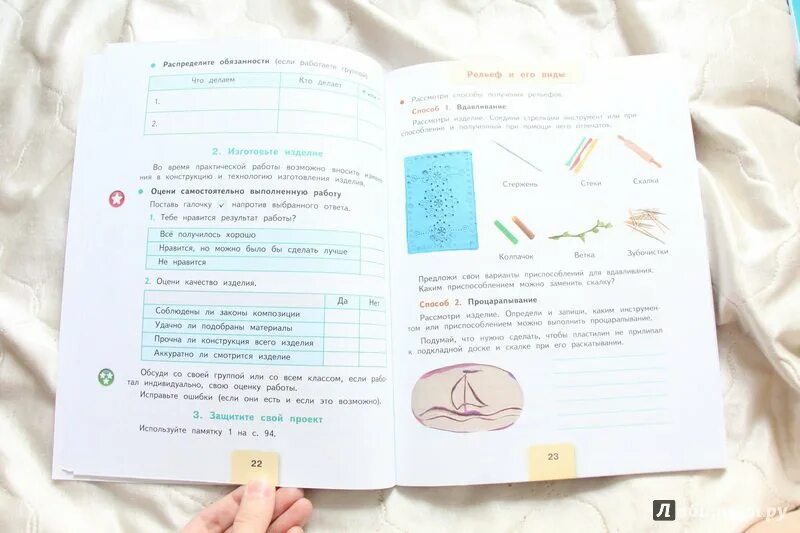 Распределите обязанности (если работаете группой)
Что делаем
Кто делает
1.
2.
2. Изготовьте изделие
Во время практической работы возможно вносить измене-
ния в конструкцию и технологию изготовления изделия.
Оцени самостоятельно выполненную работу
Поставь галочку ✓ напротив выбранного ответа.
1. Тебе нравится результат работы?
Всё получилось хорошо
Нравится, но можно было бы сделать лучше
Не нравится
2. Оцени качество изделия.
Да
Нет
Соблюдены ли законы композиции
Удачно ли подобраны материалы
Прочна ли конструкция всего изделия
Аккуратно ли смотрится изделие
Обсуди со своей группой или со всем классом, если рабо-
тал индивидуально, свою оценку работы.
Исправьте ошибки (если они есть и если это возможно).
3. Защитите свой проект
Используйте памятку 1 на с. 94.
22
Рельеф и его виды
Рассмотри способы получения рельефов.
Способ 1. Вдавливание
Рассмотри изделие. Соедини стрелками инструмент или при-
способление и полученный при помощи него отпечаток.
Стержень
Стеки
Скалка
Колпачок
Ветка
Зубочистки
Предложи свои варианты приспособлений для вдавливания.
Каким приспособлением можно заменить скалку?
Способ 2. Процарапывание
Рассмотри изделие. Определи и запиши, каким инструмен-
том или приспособлением можно выполнить процарапывание.
Подумай, что нужно сделать, чтобы пластилин не прилипал
к подкладной доске и скалке при его раскатывании.
23